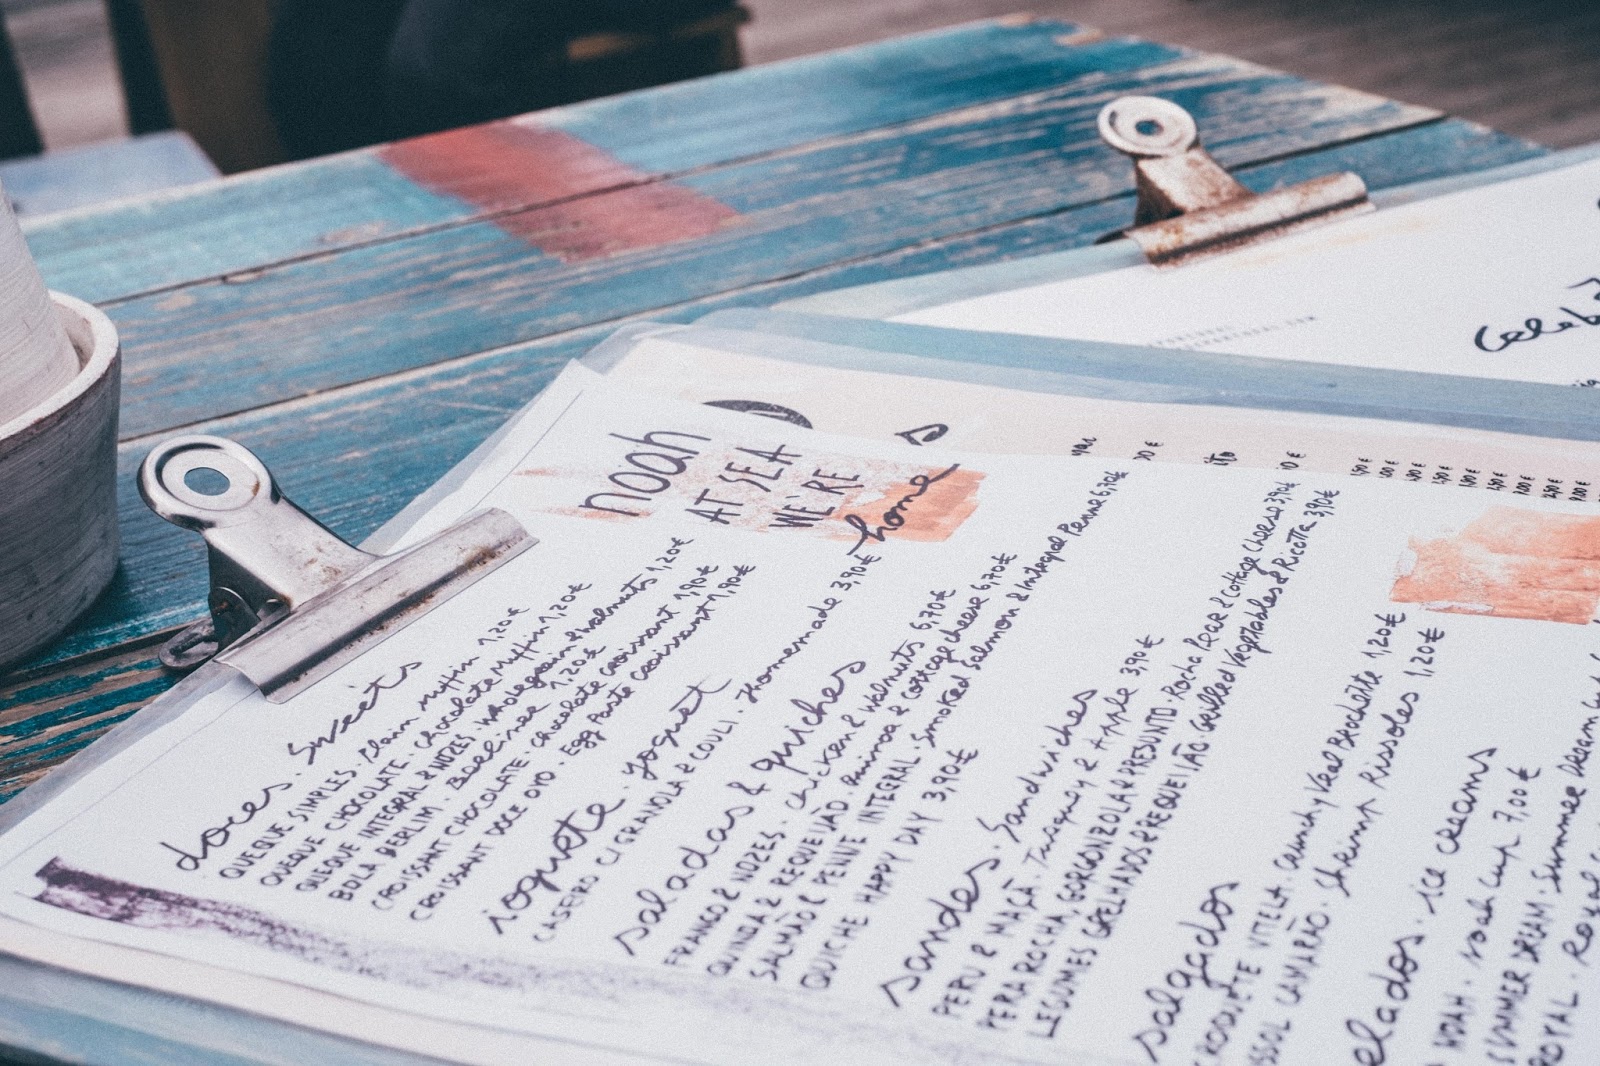 noah
AT SEA
WE'RE
home
doces. Sweets
QUEQUE SIMPLES. Plain Muffin 1,20€
QUEQUE CHOCOLATE. Chocolate Muffin 1,20€
QUEQUE INTEGRAL & NOZES. Wholegrain & Walnuts 1,20€
BOLA BERLIM. Berliner 1,20€
CROISSANT CHOCOLATE. Chocolate Croissant 1,90€
CROISSANT DOCE OVO. Egg Paste Croissant 1,90€
iogurte. yogurt
CASEIRO C/ GRANOLA & COULI. Homemade 3,90€
saladas & quiches
FRANGO & NOZES. Chicken & Walnuts 6,70€
QUINOA & REQUEIJÃO. Quinoa & Cottage Cheese 6,70€
SALMÃO & PENNE INTEGRAL. Smoked Salmon & Integral Penne 6,70€
QUICHE HAPPY DAY 3,90€
sandes. Sandwiches
PERU & MAÇÃ. Turkey & Apple 3,90€
PERA ROCHA, GORGONZOLA & PRESUNTO. Rocha Pear & Cottage Cheese 3,90€
LEGUMES GRELHADOS & REQUEIJÃO Grilled Vegetables & Ricotta 3,90€
salgados
CROQUETE VITELA. Crunchy Veal Brochette 1,20€
SSOL CAMARÃO. Shrimp Rissoles 1,20€
elados. ice creams
NOAH. Noah Cup 7,00€
SUMMER DREAM. Summer Dream
ROYAL. Royal